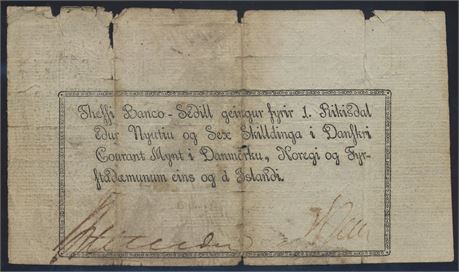 Thessi Banco-Sedill geingur fyrir 1. Rikisdal
edur Nyutiu og Sex Skilldinga i Danskri
Courant Mynt i Danmørku, Noregi og Fyr-
stadæmunum eins og á Islandi.